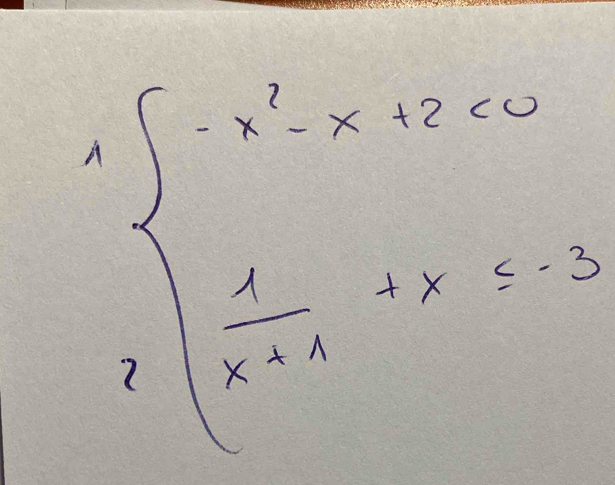 1 { - x² - x + 2 < 0
2 { 1/(x + 1) + x ≤ - 3